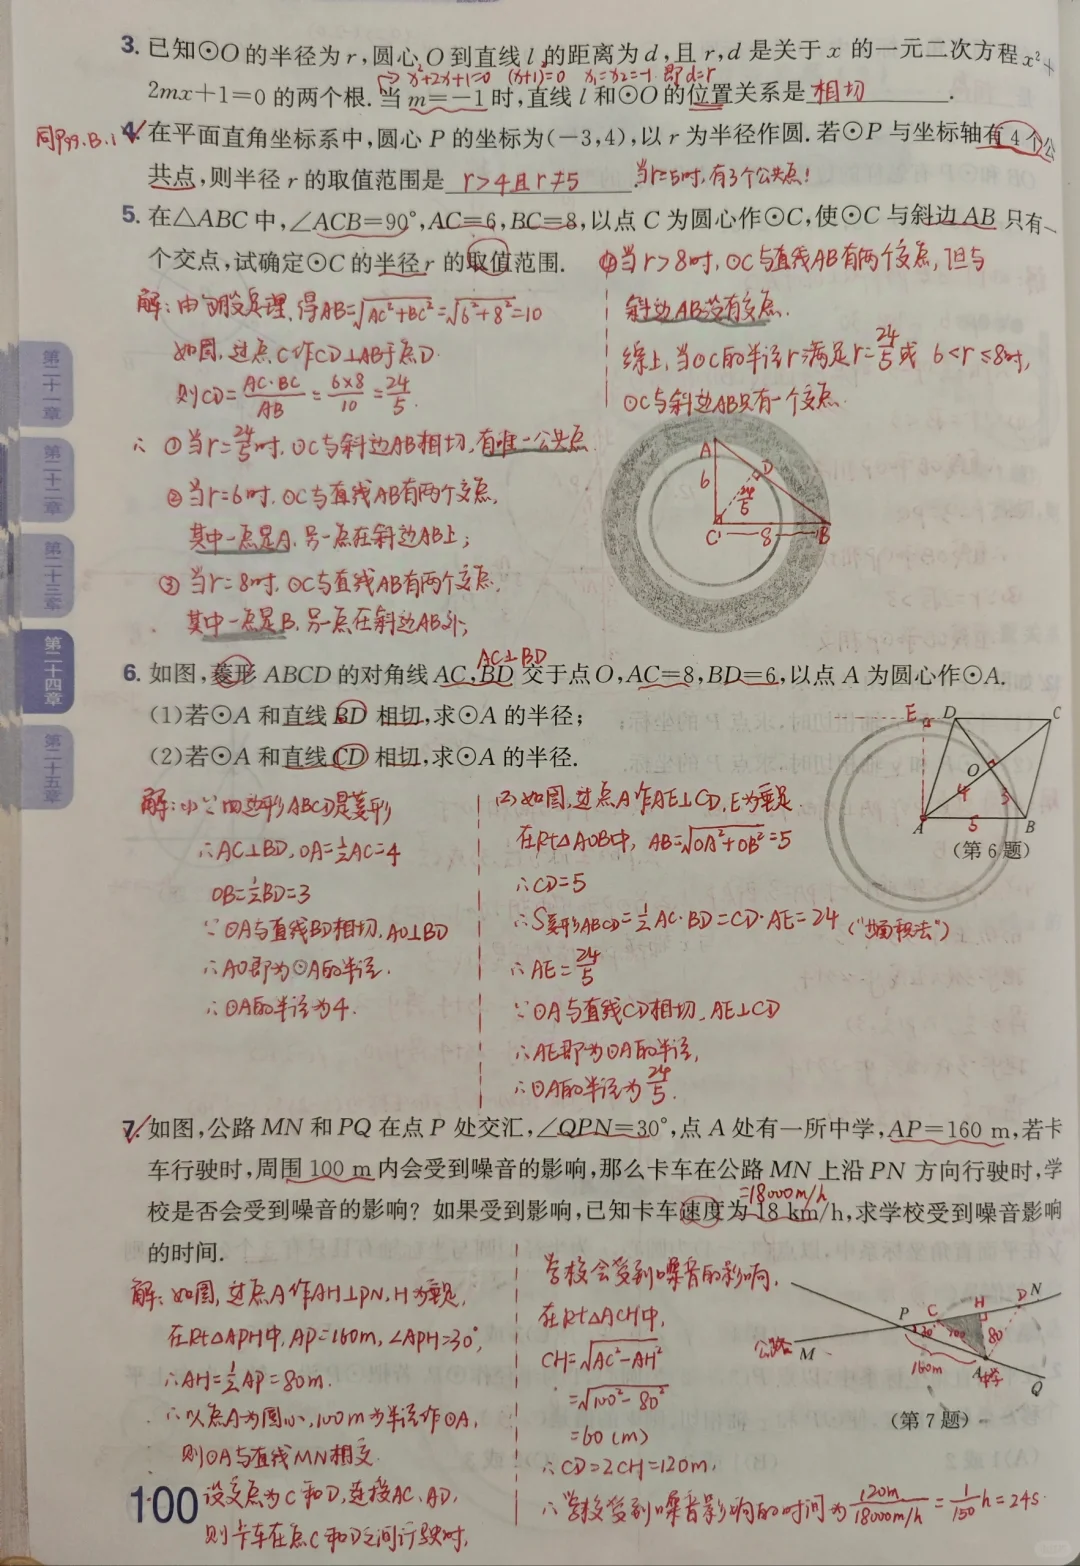 3. 已知⊙O的半径为r,圆心O到直线l的距离为d,且r,d是关于x的一元二次方程x²+
→x²+2x+1=0 (x+1)²=0 x₁=x₂=-1 即d=r
2mx+1=0的两个根.当m=-1时,直线l和⊙O的位置关系是 相切 .
同P99.B.1
4. 在平面直角坐标系中,圆心P的坐标为(-3,4),以r为半径作圆.若⊙P与坐标轴有4个公
共点,则半径r的取值范围是 r>4且r≠5 . 当r=5时,有3个公共点!
5. 在△ABC中,∠ACB=90°,AC=6,BC=8,以点C为圆心作⊙C,使⊙C与斜边AB只有一
个交点,试确定⊙C的半径r的取值范围.
解:由勾股定理,得AB=√AC²+BC²=√6²+8²=10
如图,过点C作CD⊥AB于点D.
则CD=AC·BC/AB=6×8/10=24/5.
∴ ①当r=24/5时,⊙C与斜边AB相切,有唯一公共点.
②当r=6时,⊙C与直线AB有两个交点,
其中一点是A,另一点在斜边AB上;
③当r=8时,⊙C与直线AB有两个交点,
其中一点是B,另一点在斜边AB外;
④当r>8时,⊙C与直线AB有两个交点,但与
斜边AB没有交点.
综上,当⊙C的半径r满足r=24/5或6<r≤8时,
⊙C与斜边AB只有一个交点.
A
6
D
24/5
C
8
B
AC⊥BD
6. 如图,菱形ABCD的对角线AC,BD交于点O,AC=8,BD=6,以点A为圆心作⊙A.
(1)若⊙A和直线BD相切,求⊙A的半径;
(2)若⊙A和直线CD相切,求⊙A的半径.
解:(1)∵四边形ABCD是菱形
∴AC⊥BD,OA=½AC=4
OB=½BD=3
∵⊙A与直线BD相切,AO⊥BD
∴AO即为⊙A的半径.
∴⊙A的半径为4.
(2)如图,过点A作AE⊥CD,E为垂足.
在Rt△AOB中,AB=√OA²+OB²=5
∴CD=5
∴S菱形ABCD=½AC·BD=CD·AE=24 ("等面积法")
∴AE=24/5
∵⊙A与直线CD相切,AE⊥CD
∴AE即为⊙A的半径,
∴⊙A的半径为24/5.
E D C
O
4 3
A 5 B
(第6题)
7. 如图,公路MN和PQ在点P处交汇,∠QPN=30°,点A处有一所中学,AP=160 m,若卡
车行驶时,周围100 m内会受到噪音的影响,那么卡车在公路MN上沿PN方向行驶时,学
=18000m/h
校是否会受到噪音的影响?如果受到影响,已知卡车速度为18 km/h,求学校受到噪音影响
的时间.
解:如图,过点A作AH⊥PN,H为垂足,
在Rt△APH中,AP=160m,∠APH=30°,
∴AH=½AP=80m.
∴以点A为圆心,100m为半径作⊙A,
则⊙A与直线MN相交.
设交点为C和D,连接AC、AD,
则卡车在点C和D之间行驶时,
学校会受到噪音的影响.
在Rt△ACH中,
CH=√AC²-AH²
=√100²-80²
=60(m)
∴CD=2CH=120m,
∴学校受到噪音影响的时间为120m/18000m/h=1/150h=24s.
P C H D N
30° 100 80
公路 M
160m
A 中学
Q
(第7题)
100
第二十一章
第二十二章
第二十三章
第二十四章
第二十五章